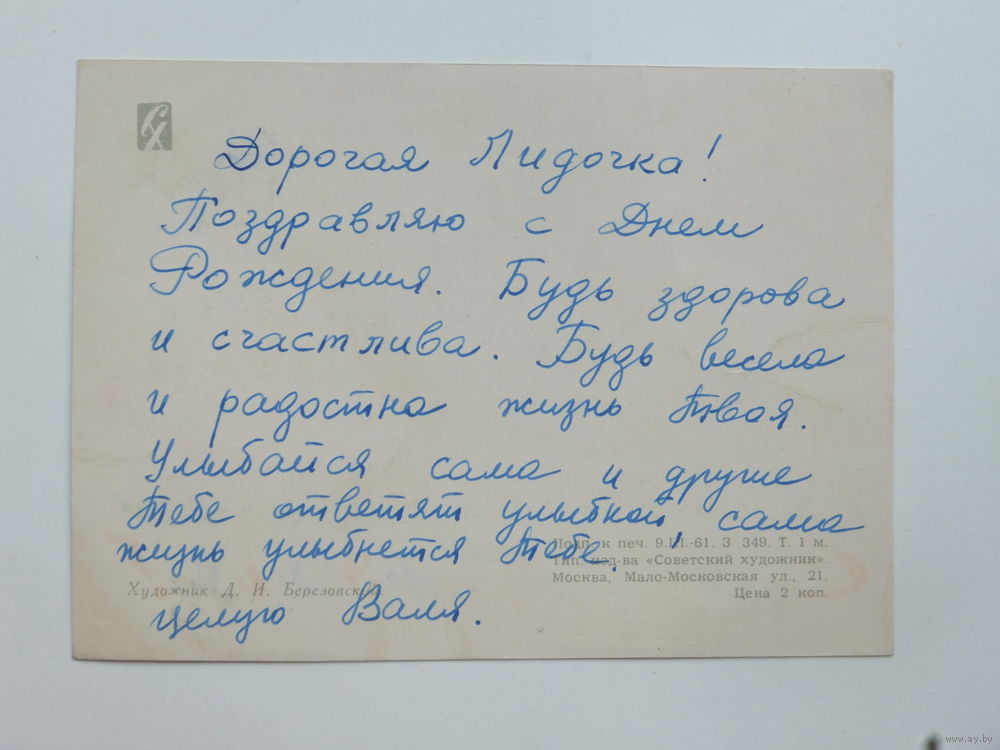 СХ
Дорогая Лидочка!
Поздравляю с Днем
Рождения. Будь здорова
и счастлива. Будь весела
и радостна жизнь твоя.
Улыбайся сама и другие
Тебе ответят улыбкой, сама
жизнь улыбнется Тебе!
Подп. к печ. 9.III.-61. З. 349. Т. 1 м.
Тип. изд-ва «Советский художник».
Москва, Мало-Московская ул., 21.
Цена 2 коп.
Художник Д. И. Березовский
целую Валя.
www.ay.by